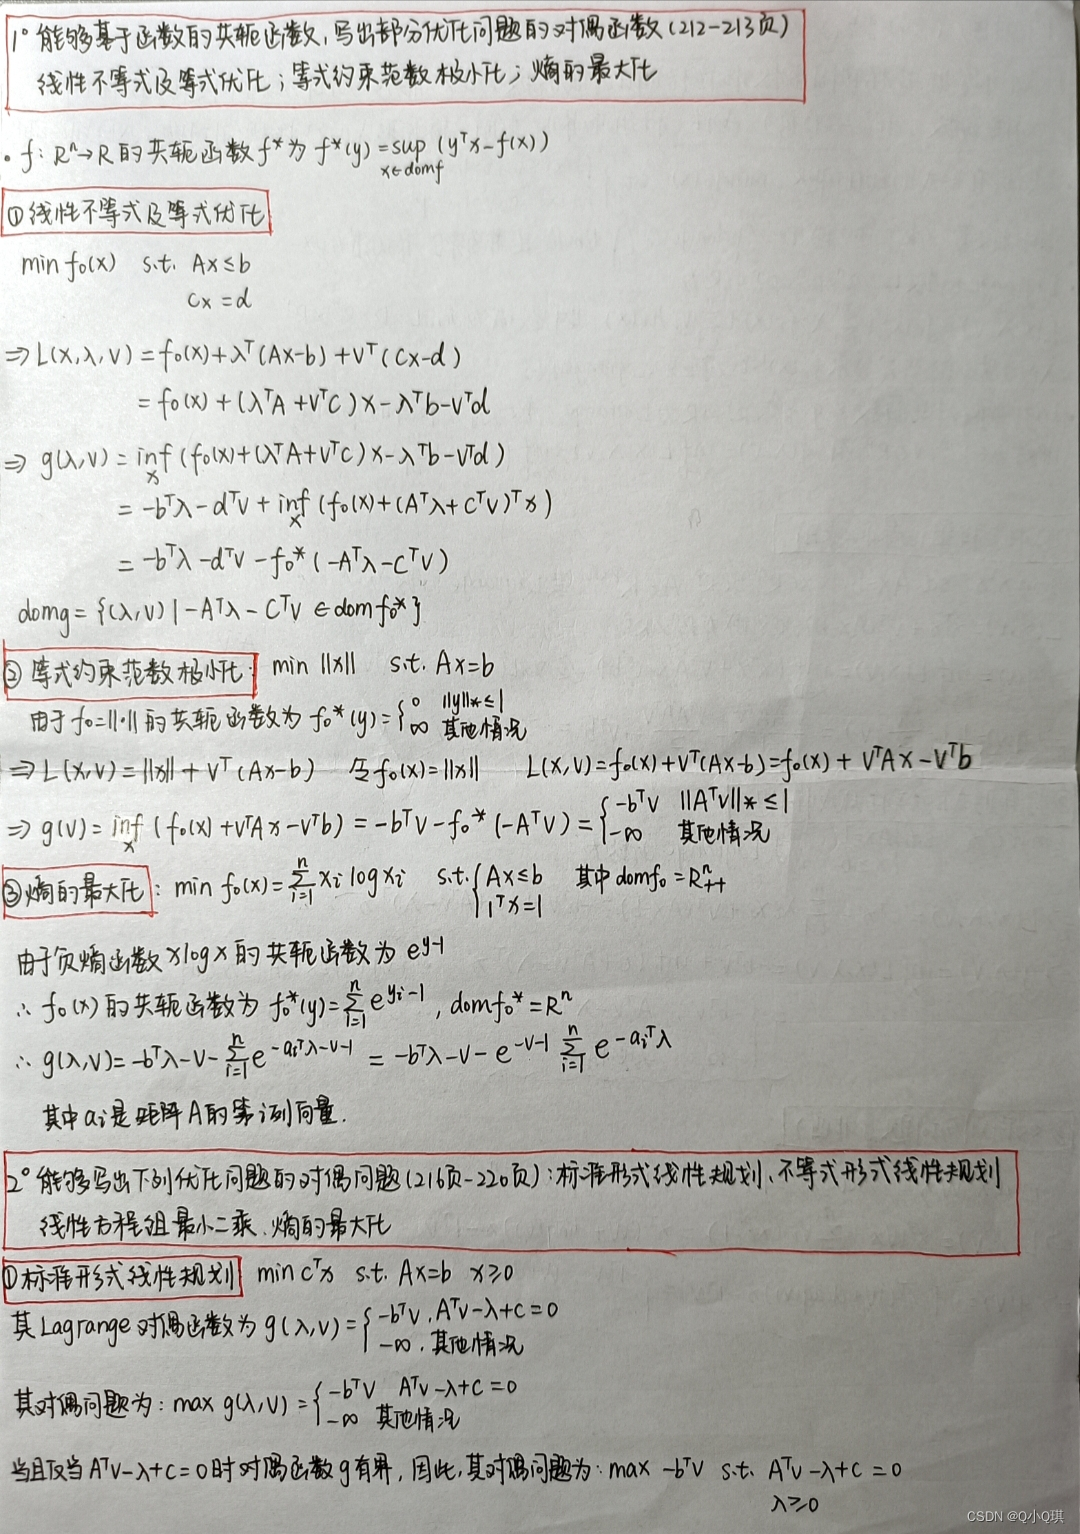 1° 能够基于函数的共轭函数,写出部分优化问题的对偶函数(212-213页)
线性不等式及等式优化;等式约束范数极小化;熵的最大化
· f: Rⁿ→R 的共轭函数 f* 为 f*(y)=sup (yᵀx-f(x))
x∈domf
①线性不等式及等式优化
min f₀(x) s.t. Ax≤b
Cx=d
⇒L(x,λ,v)=f₀(x)+λᵀ(Ax-b)+vᵀ(Cx-d)
=f₀(x)+(λᵀA+vᵀC)x-λᵀb-vᵀd
⇒ g(λ,v)=inf (f₀(x)+(λᵀA+vᵀC)x-λᵀb-vᵀd)
x
=-bᵀλ-dᵀv+inf (f₀(x)+(Aᵀλ+Cᵀv)ᵀx)
x
=-bᵀλ-dᵀv-f₀*(-Aᵀλ-Cᵀv)
domg={(λ,v)|-Aᵀλ-Cᵀv∈domf₀*}
②等式约束范数极小化: min ||x|| s.t. Ax=b
由于f₀=||·||的共轭函数为 f₀*(y)={0 ||y||*≤1
∞ 其他情况
⇒L(x,v)=||x||+vᵀ(Ax-b) 令f₀(x)=||x|| L(x,v)=f₀(x)+vᵀ(Ax-b)=f₀(x)+vᵀAx-vᵀb
⇒ g(v)=inf (f₀(x)+vᵀAx-vᵀb)=-bᵀv-f₀*(-Aᵀv)={-bᵀv ||Aᵀv||*≤1
x
-∞ 其他情况
③熵的最大化: min f₀(x)=∑ᵢ₌₁ⁿ xᵢ log xᵢ s.t.{Ax≤b 其中domf₀=Rⁿ₊₊
1ᵀx=1
由于负熵函数xlogx的共轭函数为 eʸ⁻¹
∴ f₀(x)的共轭函数为 f₀*(y)=∑ᵢ₌₁ⁿ e^(yᵢ-1), domf₀*=Rⁿ
∴ g(λ,v)=-bᵀλ-v-∑ᵢ₌₁ⁿ e^(-aᵢᵀλ-v-1) = -bᵀλ-v-e^(-v-1) ∑ᵢ₌₁ⁿ e^(-aᵢᵀλ)
其中aᵢ是矩阵A的第i列向量.
2° 能够写出下列优化问题的对偶问题(216页-220页):标准形式线性规划、不等式形式线性规划
线性方程组最小二乘、熵的最大化
①标准形式线性规划 min cᵀx s.t. Ax=b x≥0
其Lagrange对偶函数为 g(λ,v)={-bᵀv, Aᵀv-λ+c=0
-∞, 其他情况
其对偶问题为: max g(λ,v)={-bᵀv Aᵀv-λ+c=0
-∞ 其他情况
当且仅当Aᵀv-λ+c=0时对偶函数g有界,因此,其对偶问题为: max -bᵀv s.t. Aᵀv-λ+c=0
λ≥0
CSDN @Q小Q琪